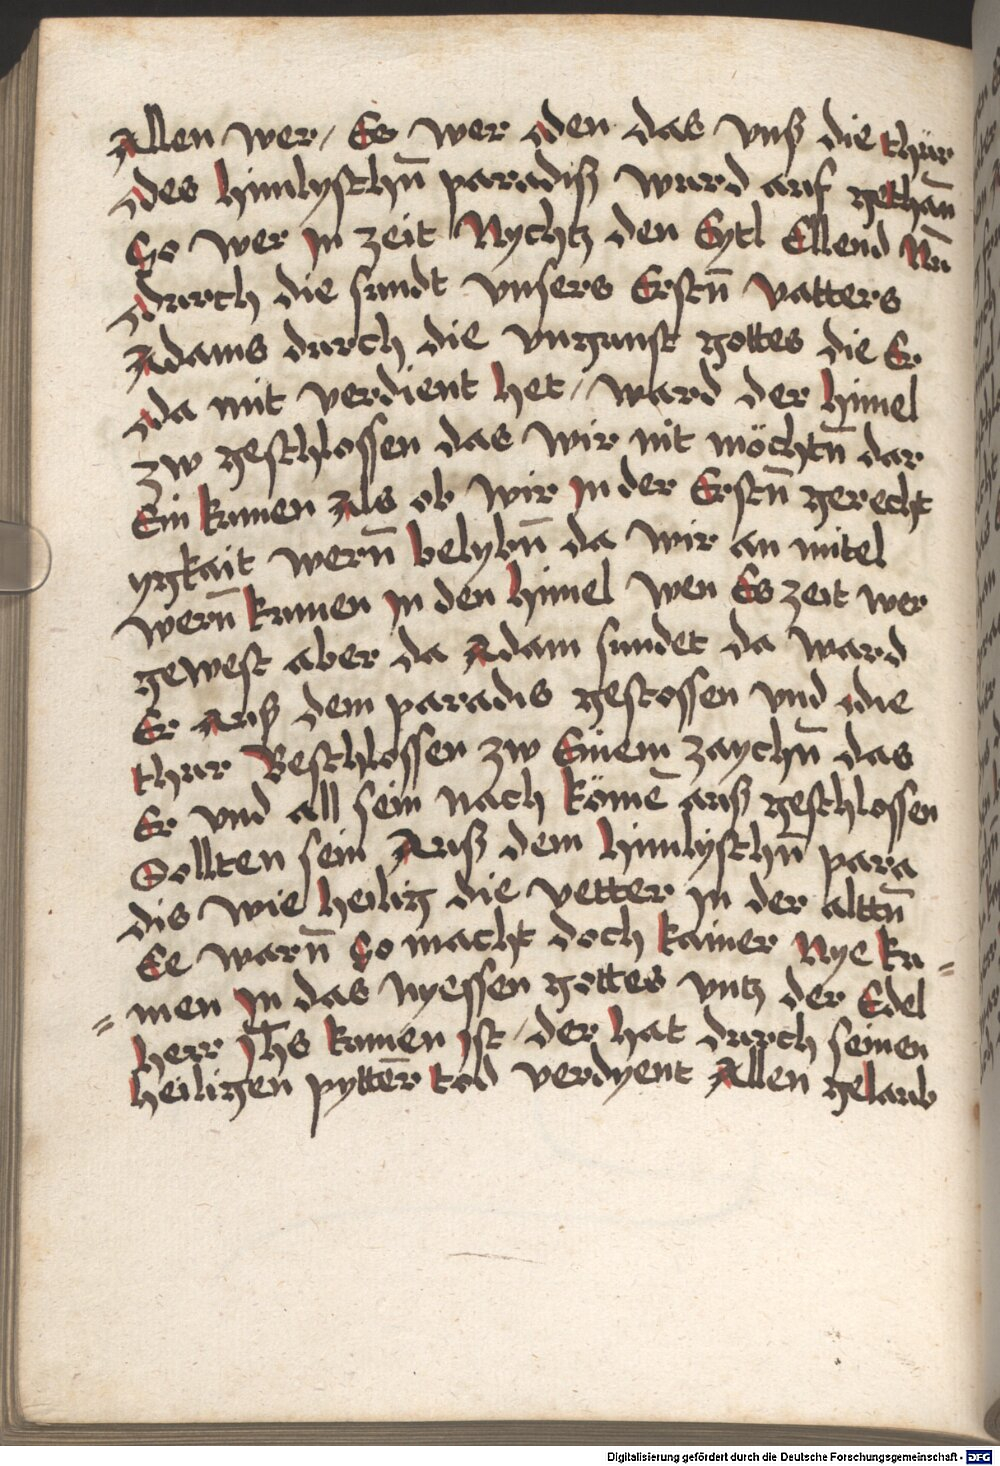 Allen wer / Es wer den das vnß die thür
des himlyschn̄ paradiß wurd auf gethan̄
So wer jn zeit Nychtz den Eytl Ellend Nū
durch die sundt vnsers Erstn̄ vatters
Adams durch die vngunst gottes die Er
da mit verdient het / ward der himel
zw geschlossen das wir nit möchtn̄ dar
Ein kumen Als ob wir jn der Erstn̄ gerecht
ygkait wern̄ belybn̄ da wir an mitel
wern̄ kumen jn den himel wen Es zeit wer
gewest aber da Adam sundet da ward
Er Auß dem paradis gestossen vnd die
thur Beschlossen zw Einem zaychn̄ das
Er vnd all sein nach kömē auß geschlossen
Sollten sein Auß dem himlyschn̄ para
dis wie heilig die vetter jn der alttn̄
Ee warn̄ So macht doch kainer Nye ku=
=men jn das nyessen gottes vntz der Edel
herr jhs kumen jst / der hat durch seinen
heiligen pyttēr tod verdyent Allen gelaub
Digitalisierung gefördert durch die Deutsche Forschungsgemeinschaft - DFG